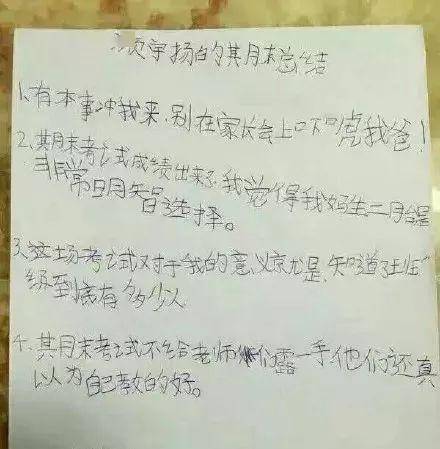 宇扬的期末总结
1.有本事冲我来,别在家长会上吓唬我爸!
2.期末考试成绩出来了,我觉得我妈生二胎是
非常明智选择。
3.这场考试对于我的意义就是,知道了班
级到底有多少人
4.期末考试不给老师们露一手,他们还真
以为自己教的好。